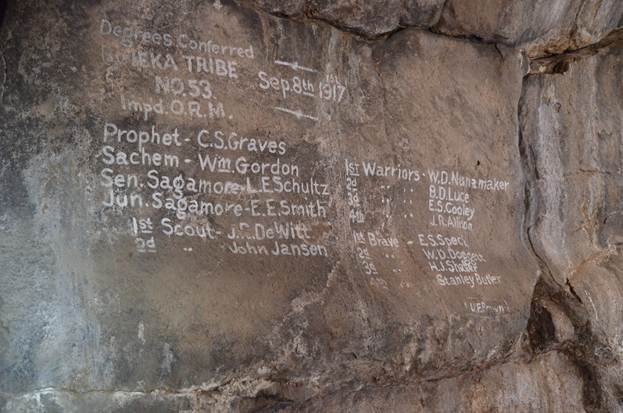 Degrees Conferred
EKA TRIBE
NO.53.
Impd. O.R.M.
Sep. 8th 1917
Prophet - C.S. Graves
Sachem - Wm Gordon
Sen. Sagamore - L.E Schultz
Jun. Sagamore - E.E. Smith
1st Scout - J.F. DeWitt
2d " John Jansen
1st Warriors - W.D. Nunamaker
2d " " B.D. Luce
3d " " E.S. Cooley
4th " " J.R.
1st Brave - E.S.
2d " W.D. Doggett
3d " " H.J.
4th " " Stanley Butler